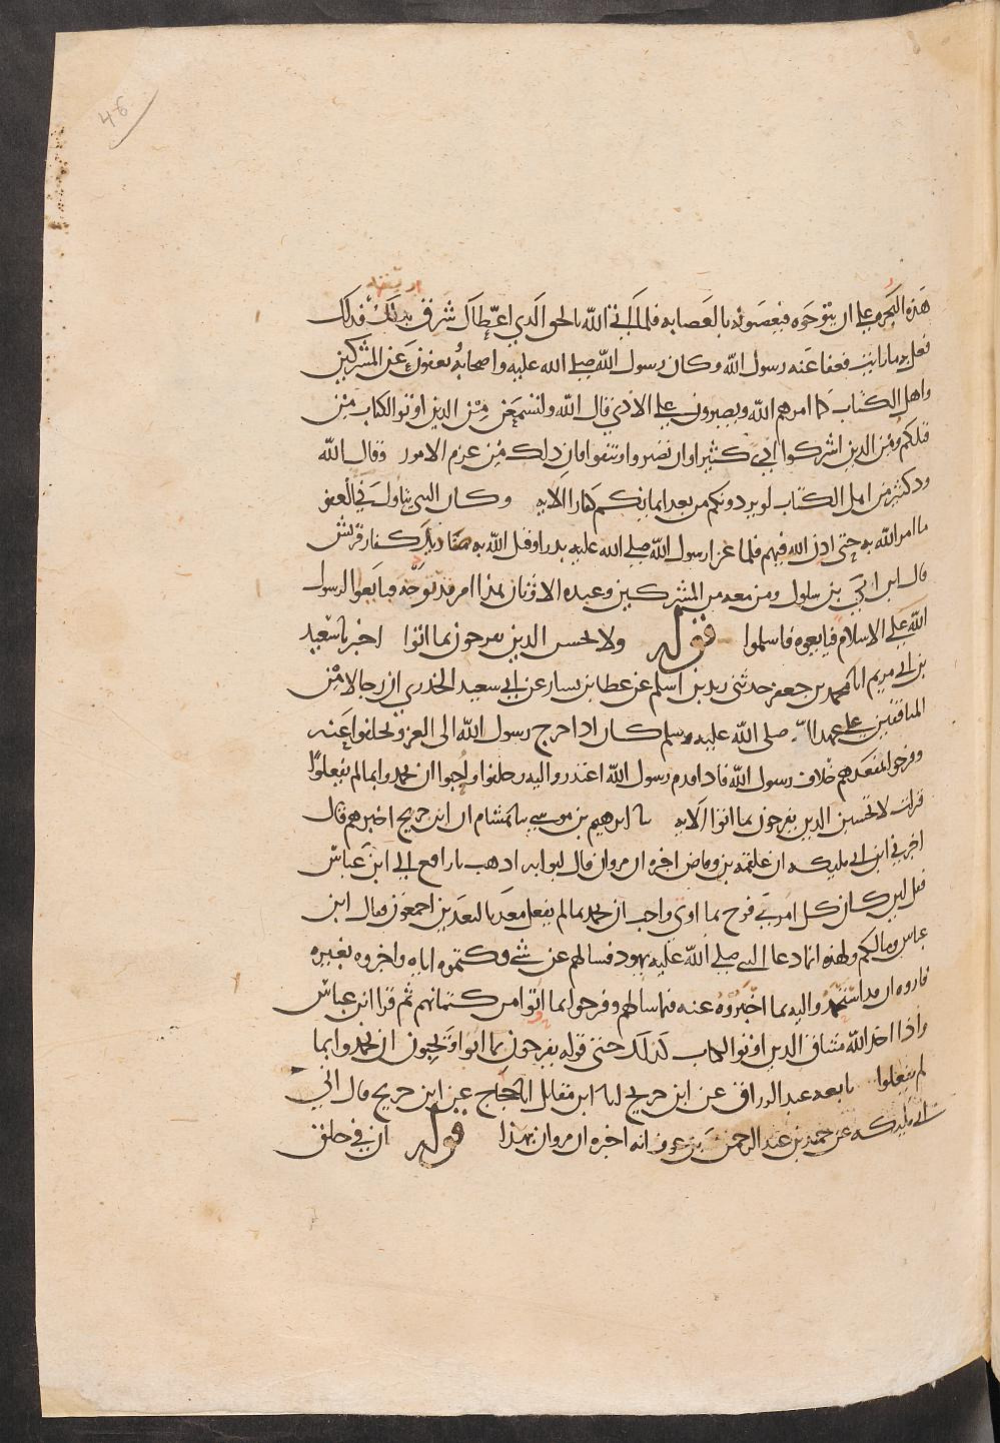 48
هذه البحره على ان يتوجوه فيعصبونه بالعصابه فلما ابى الله بالحق الذي اعطاك شرق بذلك فذلك
فعل به ما رايت فعفا عنه رسول الله وكان رسول الله صلى الله عليه واصحابه يعفون عن المشركين
واهل الكتاب كما امرهم الله ويصبرون على الاذى قال الله ولتسمعن من الذين اوتوا الكتاب من
قبلكم ومن الذين اشركوا اذى كثيرا وان تصبروا وتتقوا فان ذلك من عزم الامور وقال الله
ود كثير من اهل الكتاب لو يردونكم من بعد ايمانكم كفارا الايه وكان النبي يتاول في العفو
ما امر الله به حتى اذن الله فيهم فلما غزا رسول الله صلى الله عليه بدرا وقتل الله به صناديد كفار قريش
قال ابن ابي بن سلول ومن معه من المشركين وعبده الاوثان هذا امر قد توجه فبايعوا لرسول
الله على الاسلام فبايعوه فاسلموا قوله ولا تحسبن الذين يفرحون بما اتوا اخبرنا سعيد
بن ابي مريم انا محمد بن جعفر حدثني زيد بن اسلم عن عطا بن يسار عن ابي سعيد الخدري ان رجالا من
المنافقين على عهد صلى الله عليه وسلم كان اذا خرج رسول الله الى الغزو تخلفوا عنه
وفرحوا بمقعدهم خلاف رسول الله فاذا قدم رسول الله اعتذروا اليه وحلفوا واحبوا ان يحمدوا بما لم يفعلوا
فنزلت لا تحسبن الذين يفرحون بما اتوا الايه نا ابرهيم بن موسى نا هشام ان ابن جريج اخبرهم قال
اخبرني ابن ابي مليكه ان علقمه بن وقاص اخبره ان مروان قال لبوابه اذهب يا رافع الى ابن عباس
فقل لين كان كل امرئ فرح بما اوتي واحب ان يحمد بما لم يفعل معذبا لنعذبن اجمعون فقال ابن
عباس وما لكم ولهذه انما دعا النبي صلى الله عليه يهود فسالهم عن شي فكتموه اياه واخبروه بغيره
فاروه ان قد استحمدوا اليه بما اخبروه عنه فيما سالهم وفرحوا بما اتوا من كتمانهم ثم قرا ابن عباس
واذ اخذ الله ميثاق الذين اوتوا الكتاب كذلك حتى قوله يفرحون بما اتوا ويحبون ان يحمدوا بما
لم يفعلوا تابعه عبد الرزاق عن ابن جريج نا ابن مقاتل انا الحجاج عن ابن جريج قال اني
ابن ابي مليكه عن حميد بن عبد الرحمن بن عوف انه اخبره ان مروان بهذا قوله ان في خلق